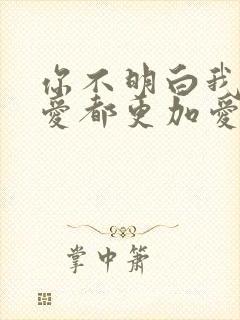 你不明白我
爱都更加爱
掌中萧